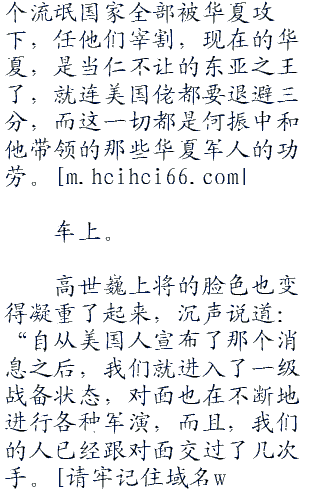 个流氓国家全部被华夏攻
下，任他们宰割，现在的华
夏，是当仁不让的东亚之王
了，就连美国佬都要退避三
分，而这一切都是何振中和
他带领的那些华夏军人的功
劳。[m.hcihci66.com|
车上。
高世巍上将的脸色也变
得凝重了起来，沉声说道：
“自从美国人宣布了那个消
息之后，我们就进入了一级
战备状态，对面也在不断地
进行各种军演，而且，我们
的人已经跟对面交过了几次
手。[请牢记住域名w